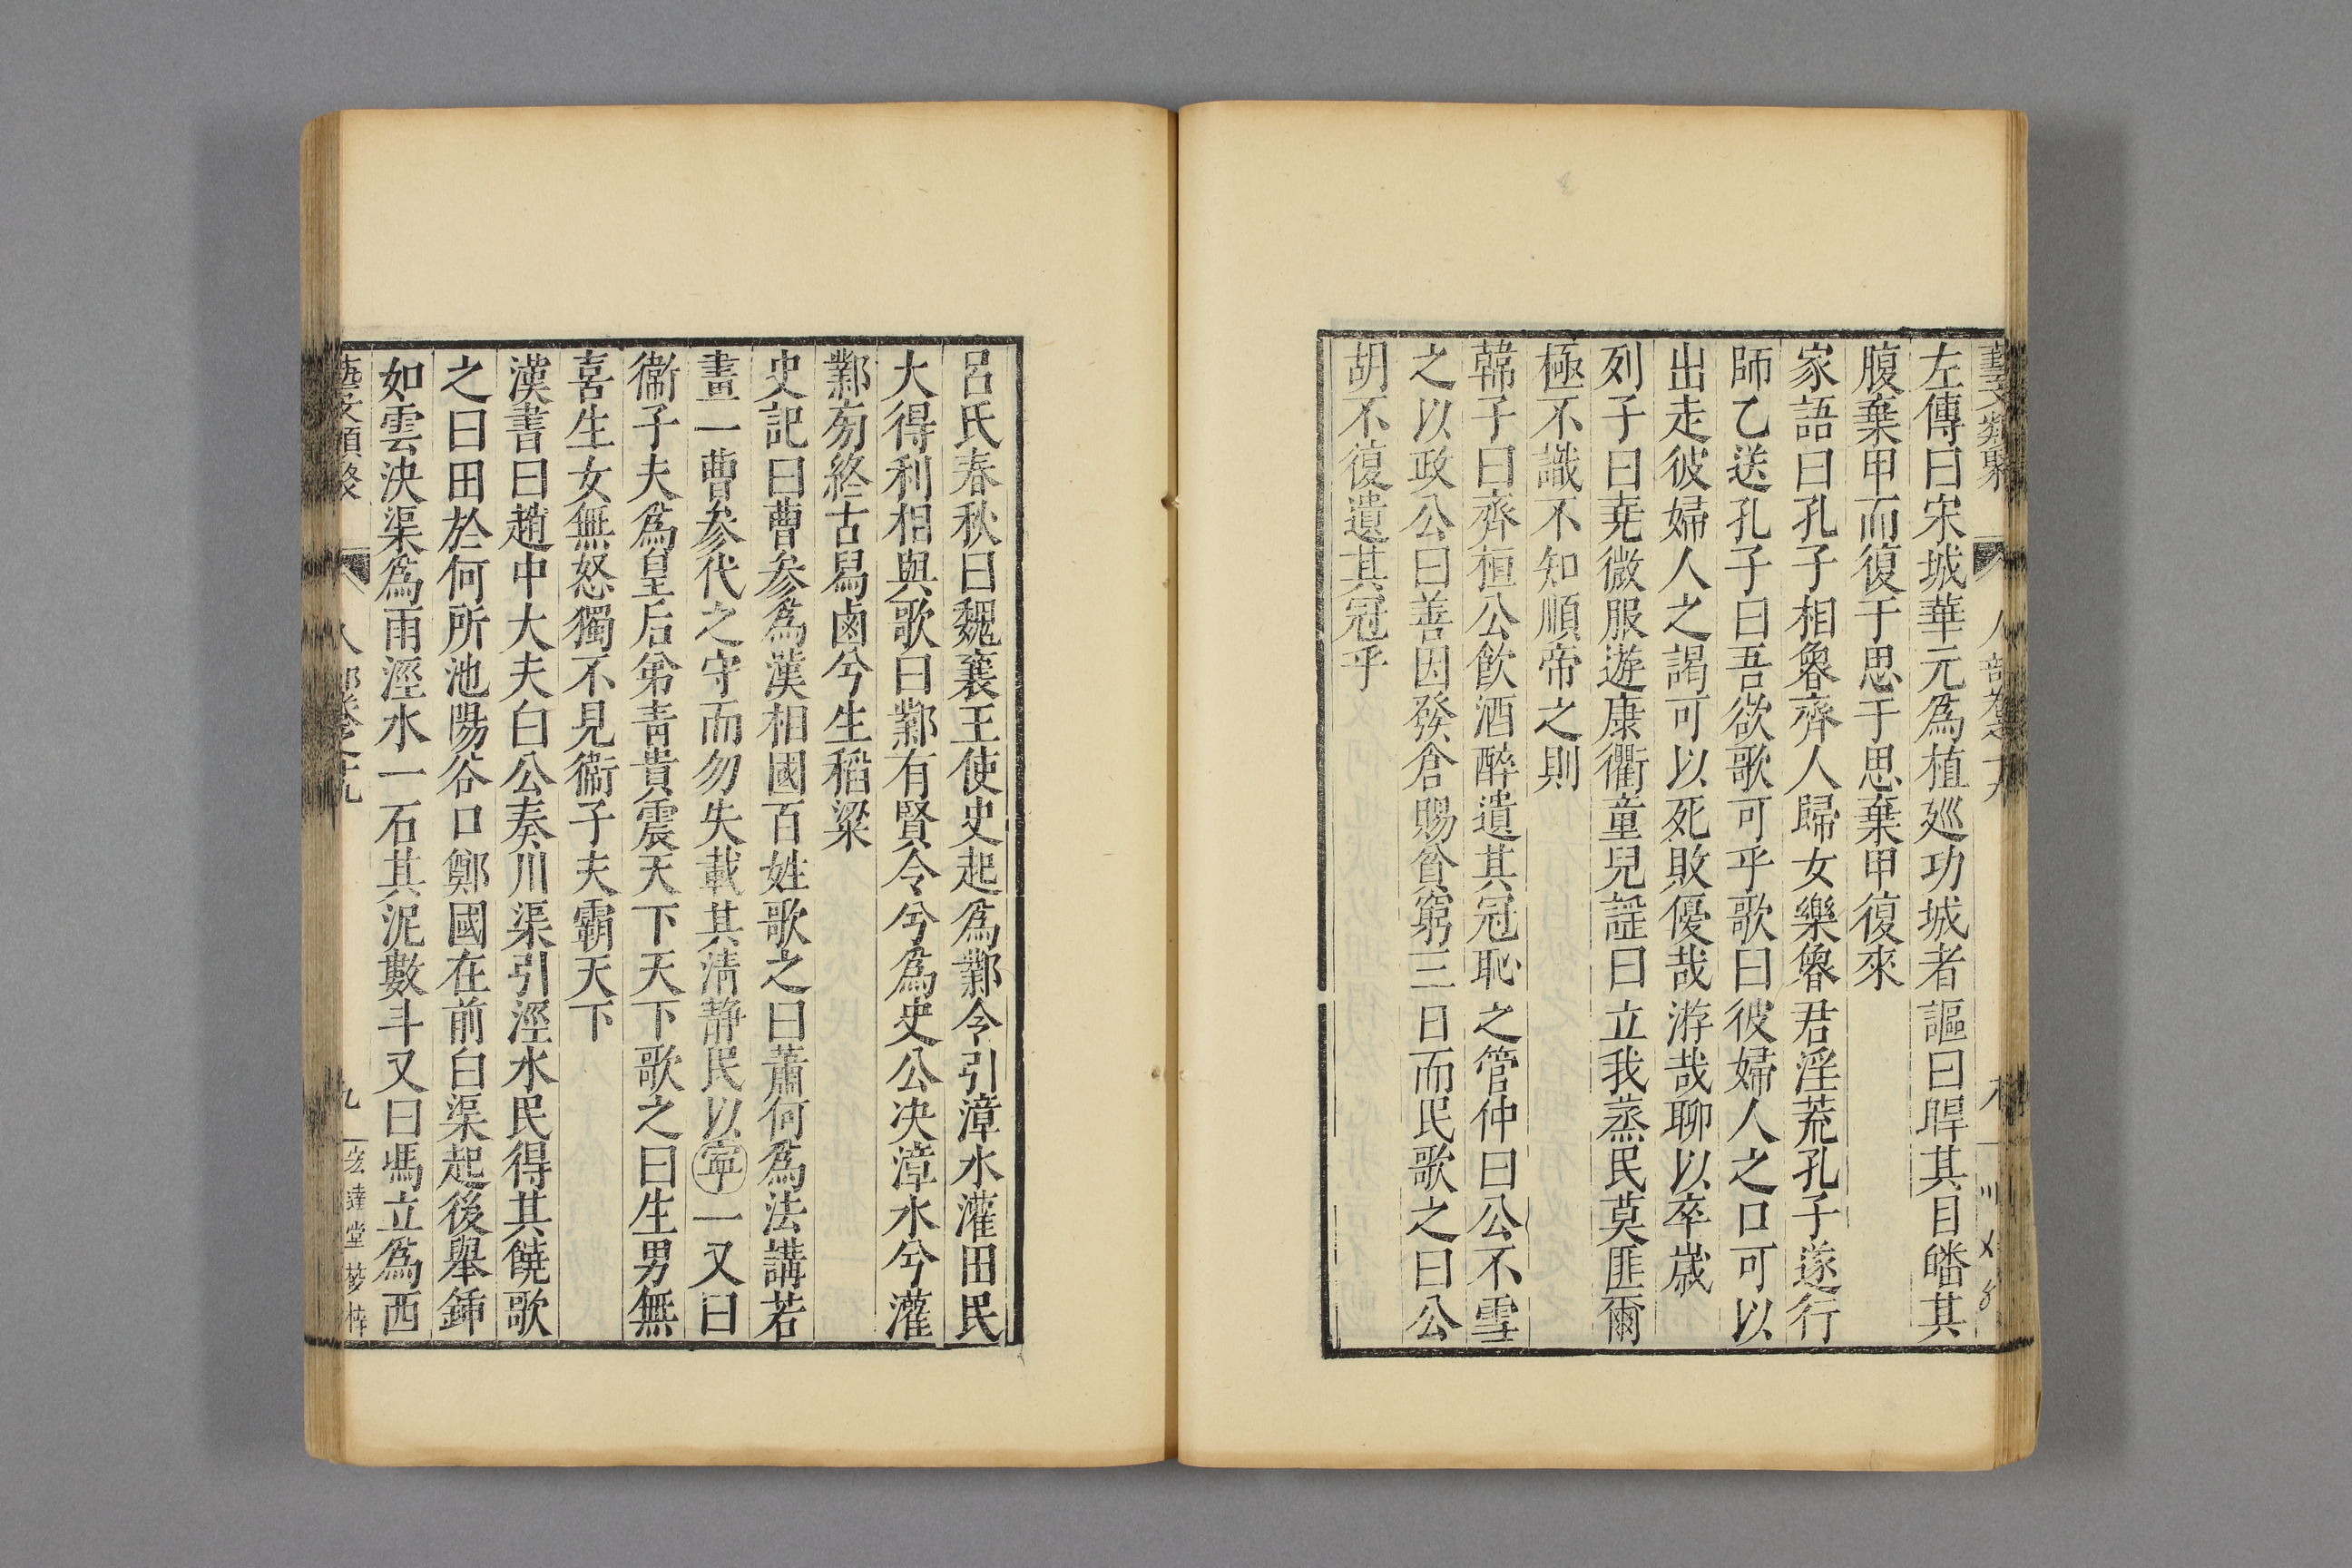 藝文類聚 人部卷之十九
左傳曰宋城華元爲植廵功城者謳曰睅其目皤其
腹棄甲而復于思于思棄甲復來
家語曰孔子相魯齊人歸女樂魯君淫荒孔子遂行
師乙送孔子曰吾欲歌可乎歌曰彼婦人之口可以
出走彼婦人之謁可以死敗優哉游哉聊以卒歲
列子曰堯微服遊康衢童兒謡曰立我蒸民莫匪爾
極不識不知順帝之則
韓子曰齊桓公飮酒醉遺其冠恥之管仲曰公不雪
之以政公曰善因發倉賜貧窮三日而民歌之曰公
胡不復遺其冠乎
呂氏春秋曰魏襄王使史起爲鄴令引漳水灌田民
大得利相與歌曰鄴有賢令兮爲史公决漳水兮灌
鄴旁終古舄鹵兮生稻粱
史記曰曹參爲漢相國百姓歌之曰蕭何爲法講若
畫一曹參代之守而勿失載其淸静民以寧一又曰
衞子夫爲皇后弟靑貴震天下天下歌之曰生男無
喜生女無怒獨不見衞子夫霸天下
漢書曰趙中大夫白公奏川渠引涇水民得其饒歌
之曰田於何所池陽谷口鄭國在前白渠起後舉鍤
如雲決渠爲雨涇水一石其泥數斗又曰馮立爲西
藝文類聚 人部卷之十九 九 宏達堂校梓